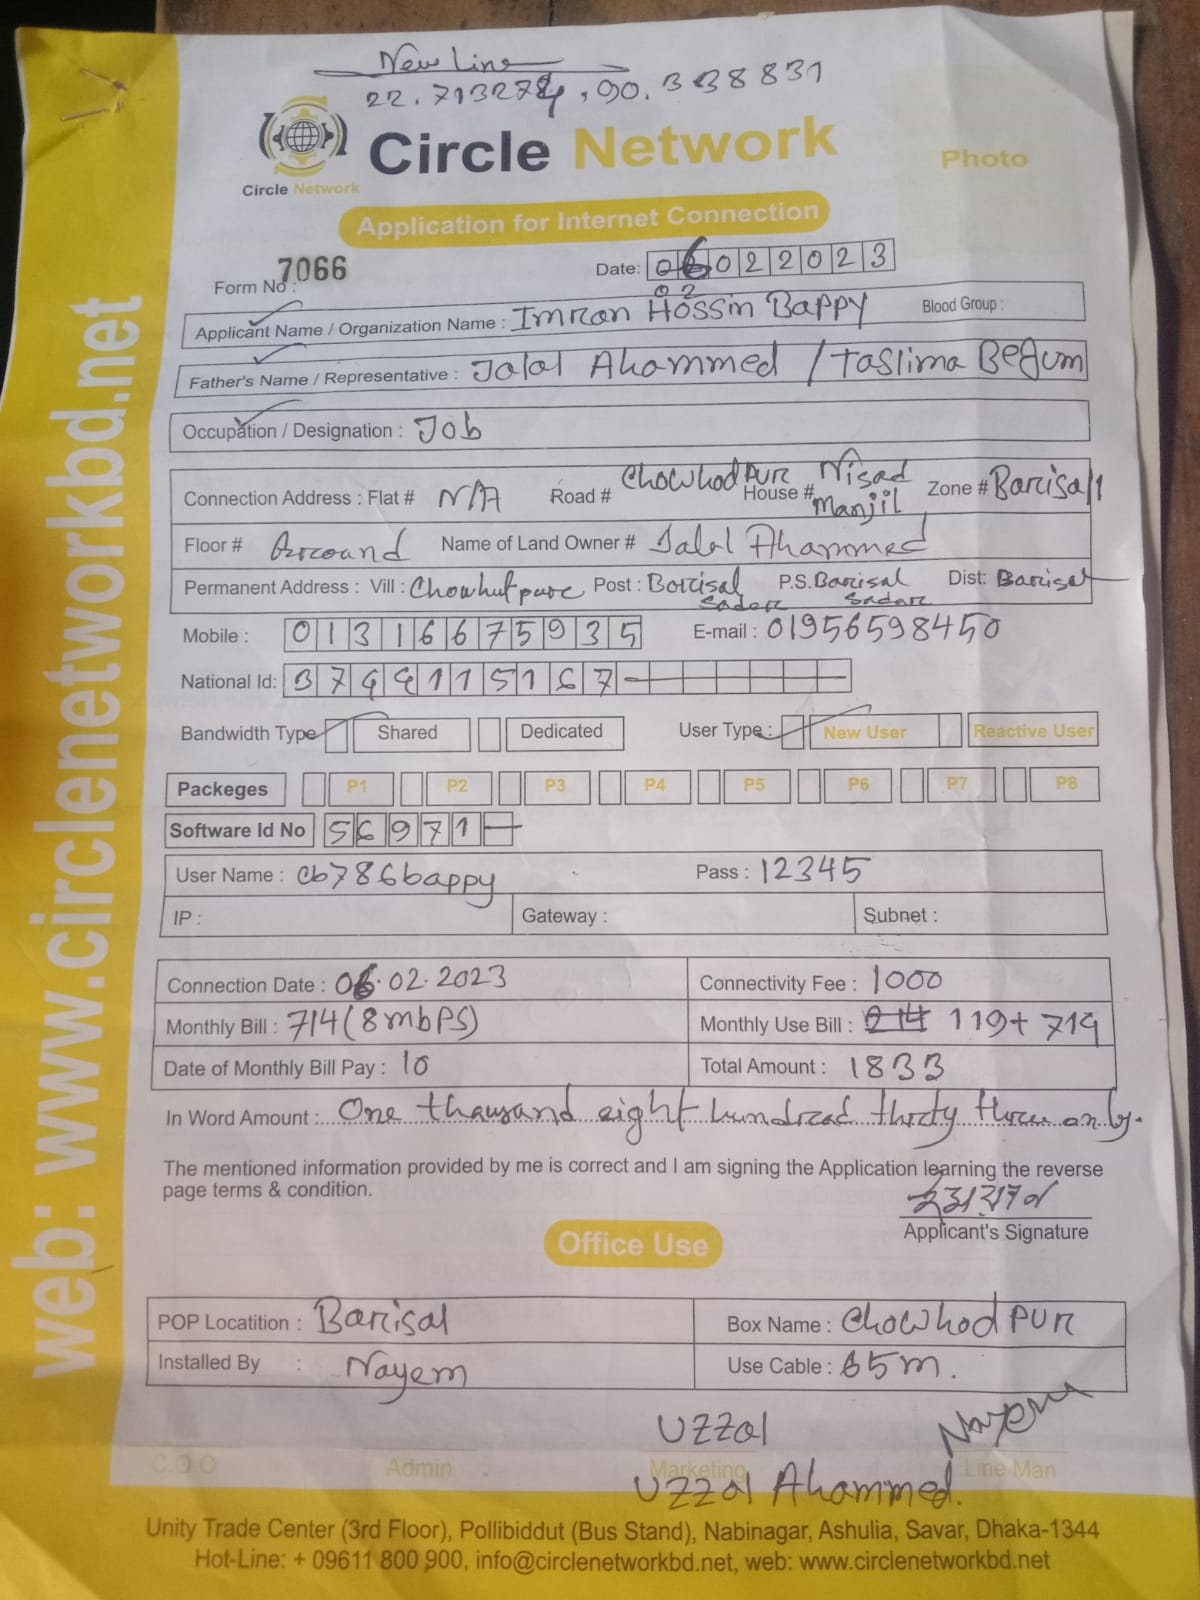 New Line
22.713274, 90.338831
Circle Network
Circle Network
Photo
Application for Internet Connection
Form No : 7066
Date: 06022023
02
Applicant Name / Organization Name : Imran Hossin Bappy Blood Group :
Father's Name / Representative : Jalal Ahammed / Taslima Begum
Occupation / Designation : Job
Connection Address : Flat # N/A Road # Chowhodpur House # Nisad Manjil Zone # Barisal
Floor # Ground Name of Land Owner # Jalal Ahammed
Permanent Address : Vill : Chowhutpure Post : Barisal Sador P.S. Barisal Sadar Dist: Barisal
Mobile : 01316675935 E-mail : 01956598450
National Id:
Bandwidth Type Shared Dedicated User Type : New User Reactive User
Packeges P1 P2 P3 P4 P5 P6 P7 P8
Software Id No 56971
User Name : cb786bappy Pass : 12345
IP : Gateway : Subnet :
Connection Date : 06.02.2023 Connectivity Fee : 1000
Monthly Bill : 714 (8mbps) Monthly Use Bill : 214 119+ 714
Date of Monthly Bill Pay : 10 Total Amount : 1833
In Word Amount : One thausand eight hundread thirty three only.
The mentioned information provided by me is correct and I am signing the Application learning the reverse
page terms & condition.
ইমরান
Applicant's Signature
Office Use
POP Locatition : Barisal Box Name : Chowhodpur
Installed By : Nayem Use Cable : 65m.
Uzzal Nayem
C.O.O Admin Marketing Line Man
Uzzal Ahammed.
Unity Trade Center (3rd Floor), Pollibiddut (Bus Stand), Nabinagar, Ashulia, Savar, Dhaka-1344
Hot-Line: + 09611 800 900, info@circlenetworkbd.net, web: www.circlenetworkbd.net
web: www.circlenetworkbd.net